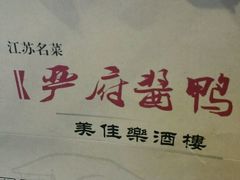 江苏名菜
严府醬鸭
美佳樂酒樓